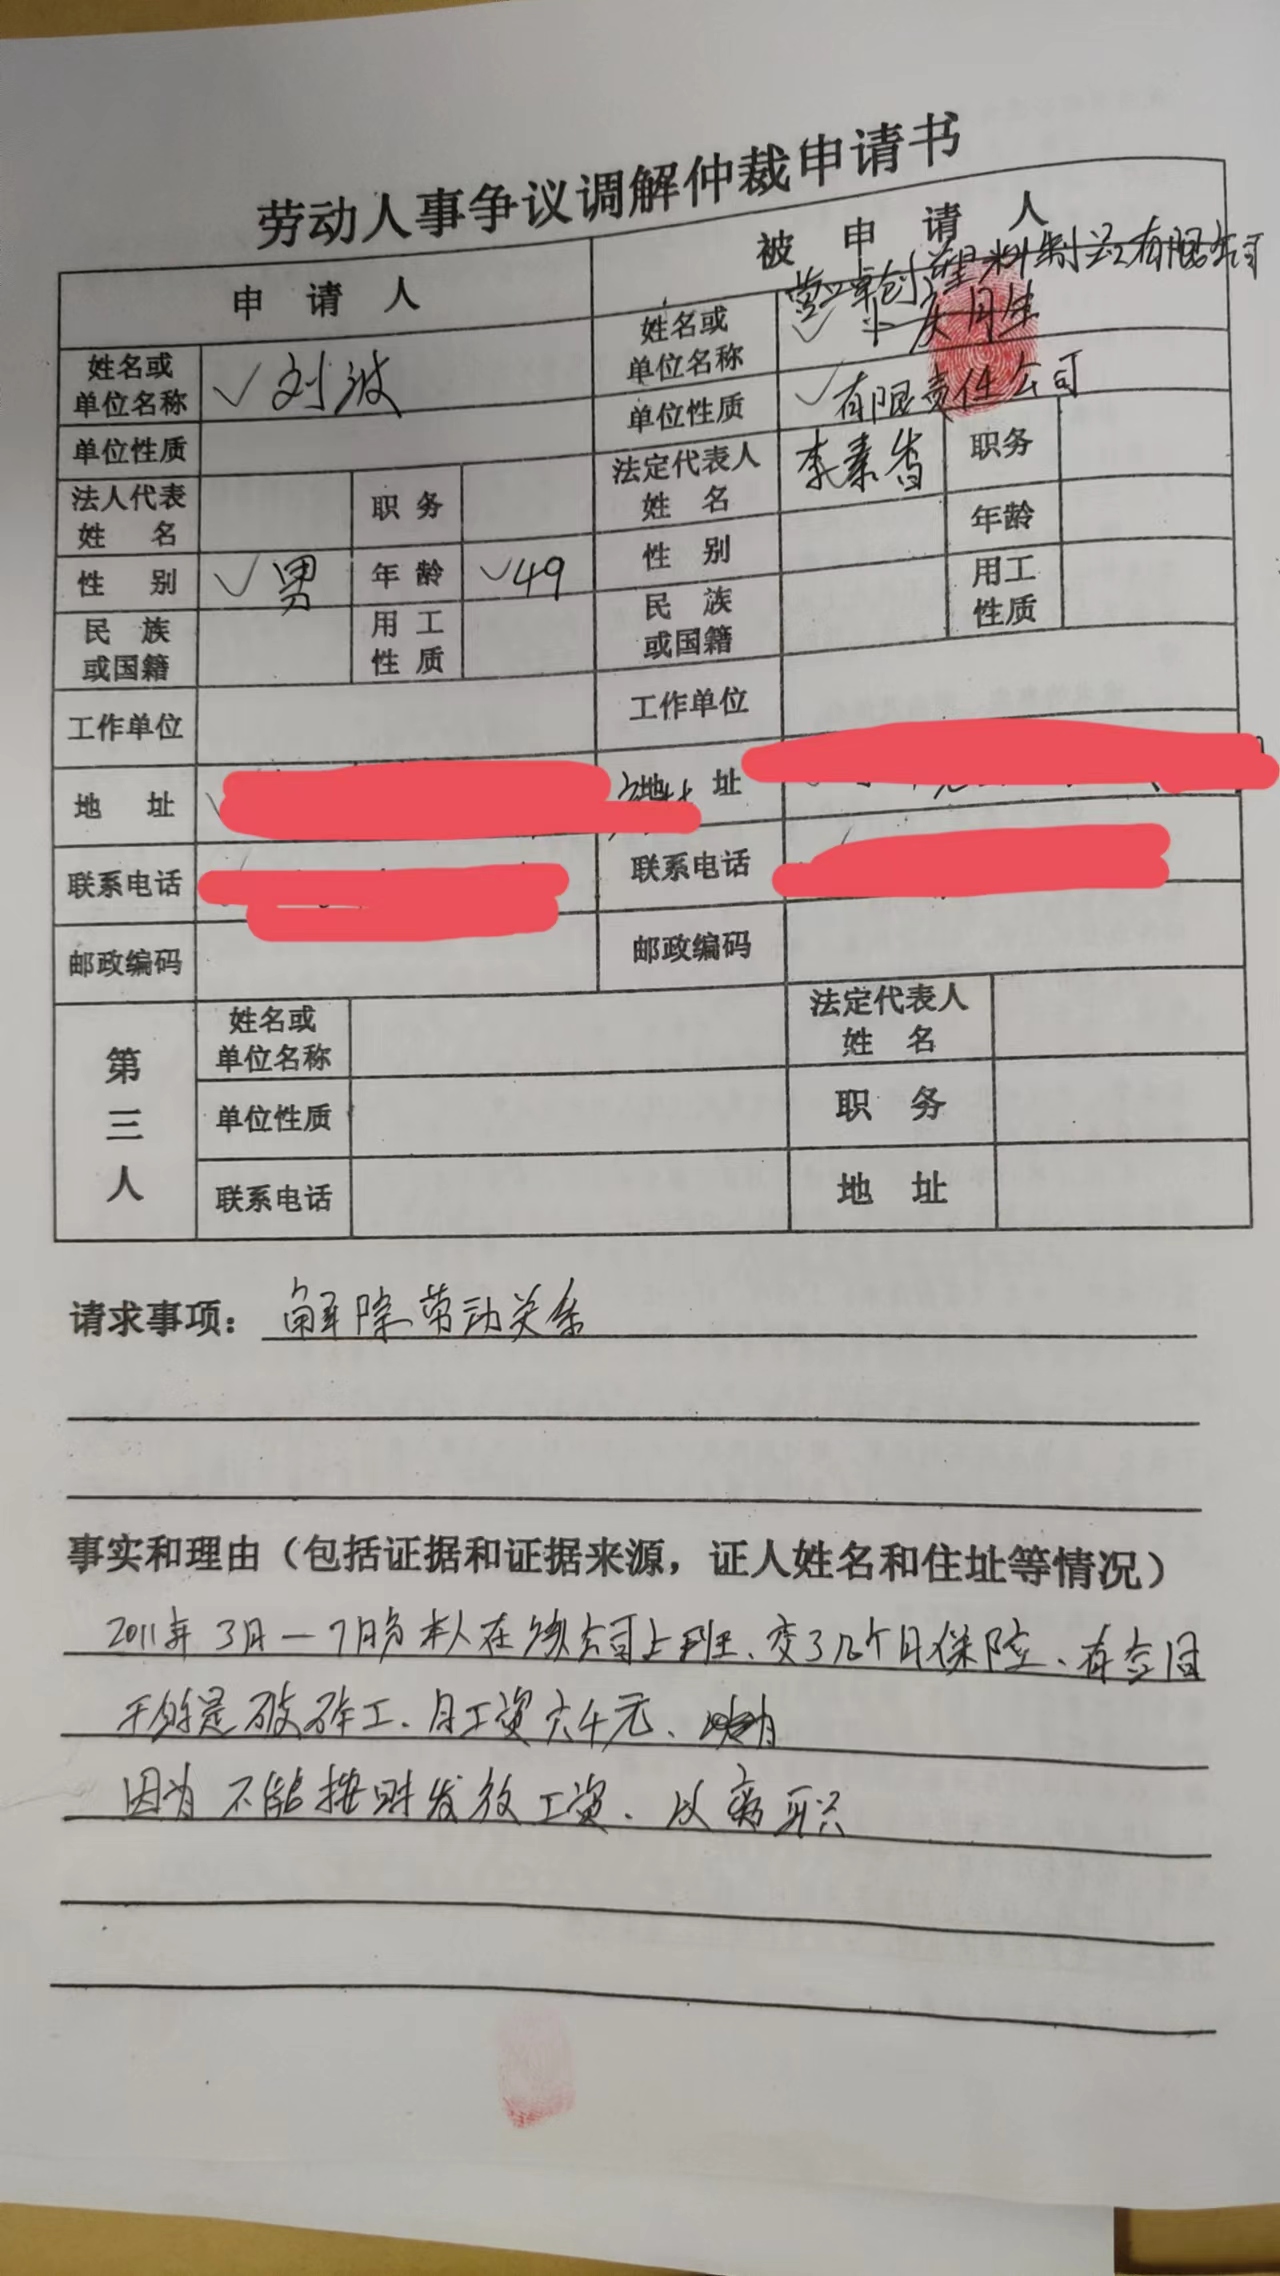 劳动人事争议调解仲裁申请书
申 请 人
被 申 请 人
姓名或
单位名称
✓刘波
姓名或
单位名称
塑料制品有限公司
✓
单位性质
单位性质
✓有限责任公司
法人代表
姓 名
职 务
法定代表人
姓 名
李素香
职务
性 别
✓男
年 龄
✓49
性 别
年龄
民 族
或国籍
用 工
性 质
民 族
或国籍
用工
性质
工作单位
工作单位
地 址
地 址
联系电话
联系电话
邮政编码
邮政编码
第三人
姓名或
单位名称
法定代表人
姓 名
单位性质
职 务
联系电话
地 址
请求事项：解除劳动关系
事实和理由（包括证据和证据来源，证人姓名和住址等情况）
2011年3月一7月份本人在该公司上班、交了几个月保险、有合同
干的是破碎工、月工资六千元、
因为不能按时发放工资、以离职